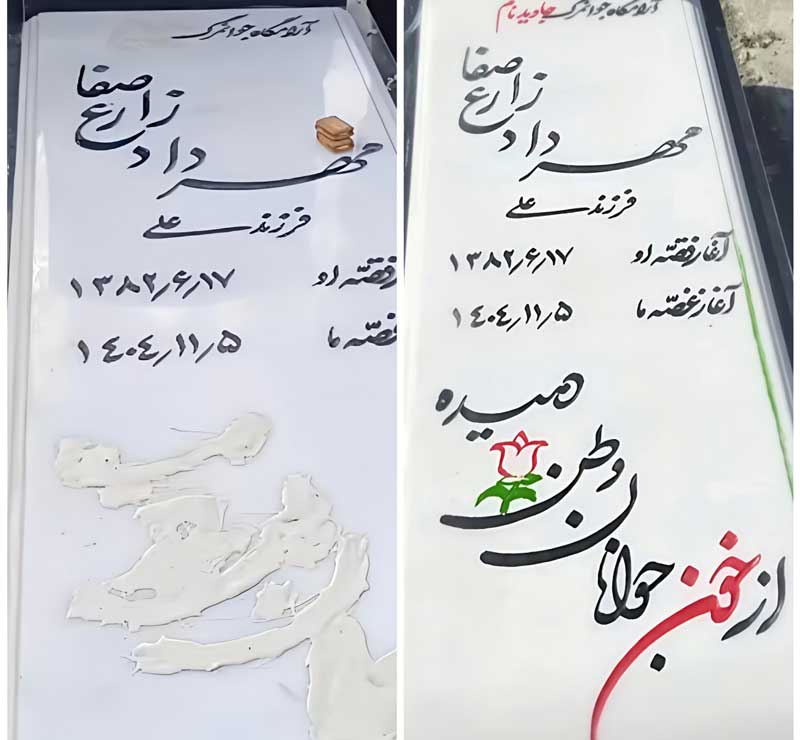 آرامگاه جوانمرگ جاوید نام
مهرداد زارع صفا
فرزند علی
آغاز قصّه او ۱۳۸۲/۶/۱۷
آغاز غصّه ما ۱۴۰۴/۱۱/۵
از خون جوانان وطن دمیده
آرامگاه جوانمرگ
مهرداد زارع صفا
فرزند علی
قصّه او ۱۳۸۲/۶/۱۷
غصّه ما ۱۴۰۴/۱۱/۵